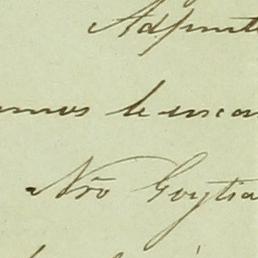 Adjunt
amos le encar
Nro Goytia